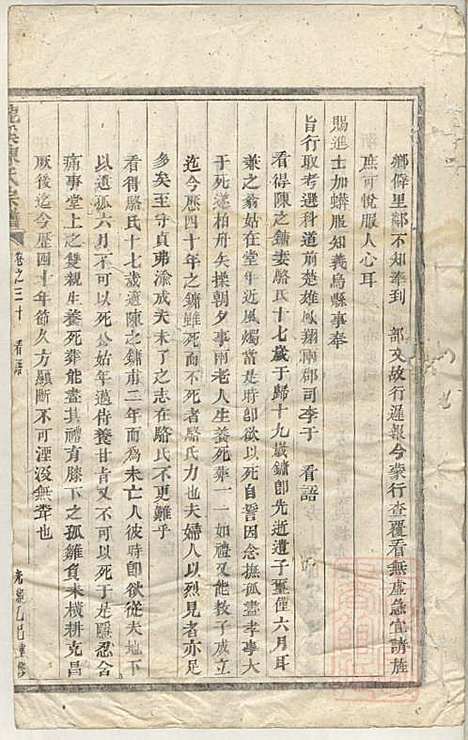 鄉僻里鄰不知奉到 部文故行遲報今蒙行查覆看無虛急宜請旌
庶可悅服人心耳
賜進士加蟒服知義烏縣事奉
旨行取考選科道前楚雄鳳翔兩郡司李于 看語
看得陳之鏞妻駱氏十七歲于歸十九歲鏞卽先逝遺子璽僅六月耳
兼之翁姑在堂年近風燭當是時卽欲以死自誓因念撫孤盡孝事大
于死遂柏舟矢操朝夕事兩老人生養死葬一一如禮又能教子成立
迄今歷四十年之鏞雖死而不死者駱氏力也夫婦人以烈見者亦足
多矣至守貞弗渝成夫未了之志在駱氏不更難乎
看得駱氏十七歲適陳之鏞甫二年而為未亡人彼時卽欲從夫地下
以遺孤六月不可以死公姑年邁侍養甘旨又不可以死于是隱忍含
痛事堂上之雙親生養死葬能盡其禮育膝下之孤雛負耒橫耕克昌
厥後迄今歷四十年節久方顯斷不可湮沒無聞也
陳氏宗譜
卷之三十 看語
光緒乙巳重修